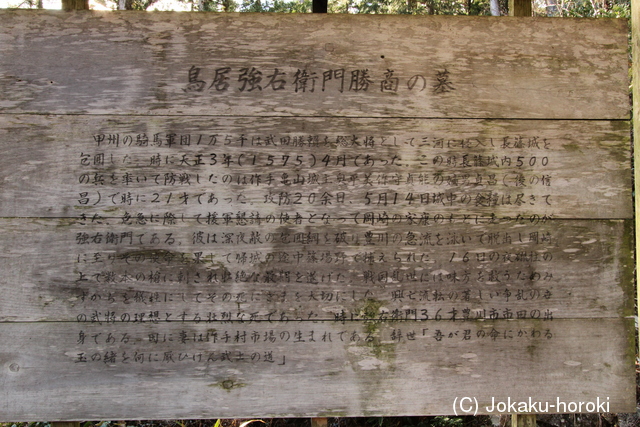 鳥居強右衛門勝商の墓
甲州の騎馬軍団1万5千は武田勝頼を総大将として三河に侵入し長篠城を
包囲した 時に天正3年(1575)4月であった この時長篠城内500
の兵を率いて防戦したのは作手亀山城主奥平美作守貞能の嫡男貞昌(後の信
昌)で時に21才であった。攻防20余日、5月14日城中の食糧は尽きて
きた。危急に際して援軍懇請の使者となって岡崎の家康のもとに
強右衛門である。彼は深夜敵の包囲網を破り豊川の急流を泳いで脱出し岡崎
に至りその を果して帰城の途中篠場野で捕えられた 16日
上で を遂げた。戦国乱世には味方を救うためみ
ずからを犠牲にしてその死にざまを大切にした。 の
の武将の理想とする壮烈な死であった 時に強右衛門36才豊川市市田の出
身である。因に妻は作手村市場の生まれである。辞世「吾が君の命にかわる
玉の緒を何に厭ひけん武士の道」
(C) Jokaku-horoki